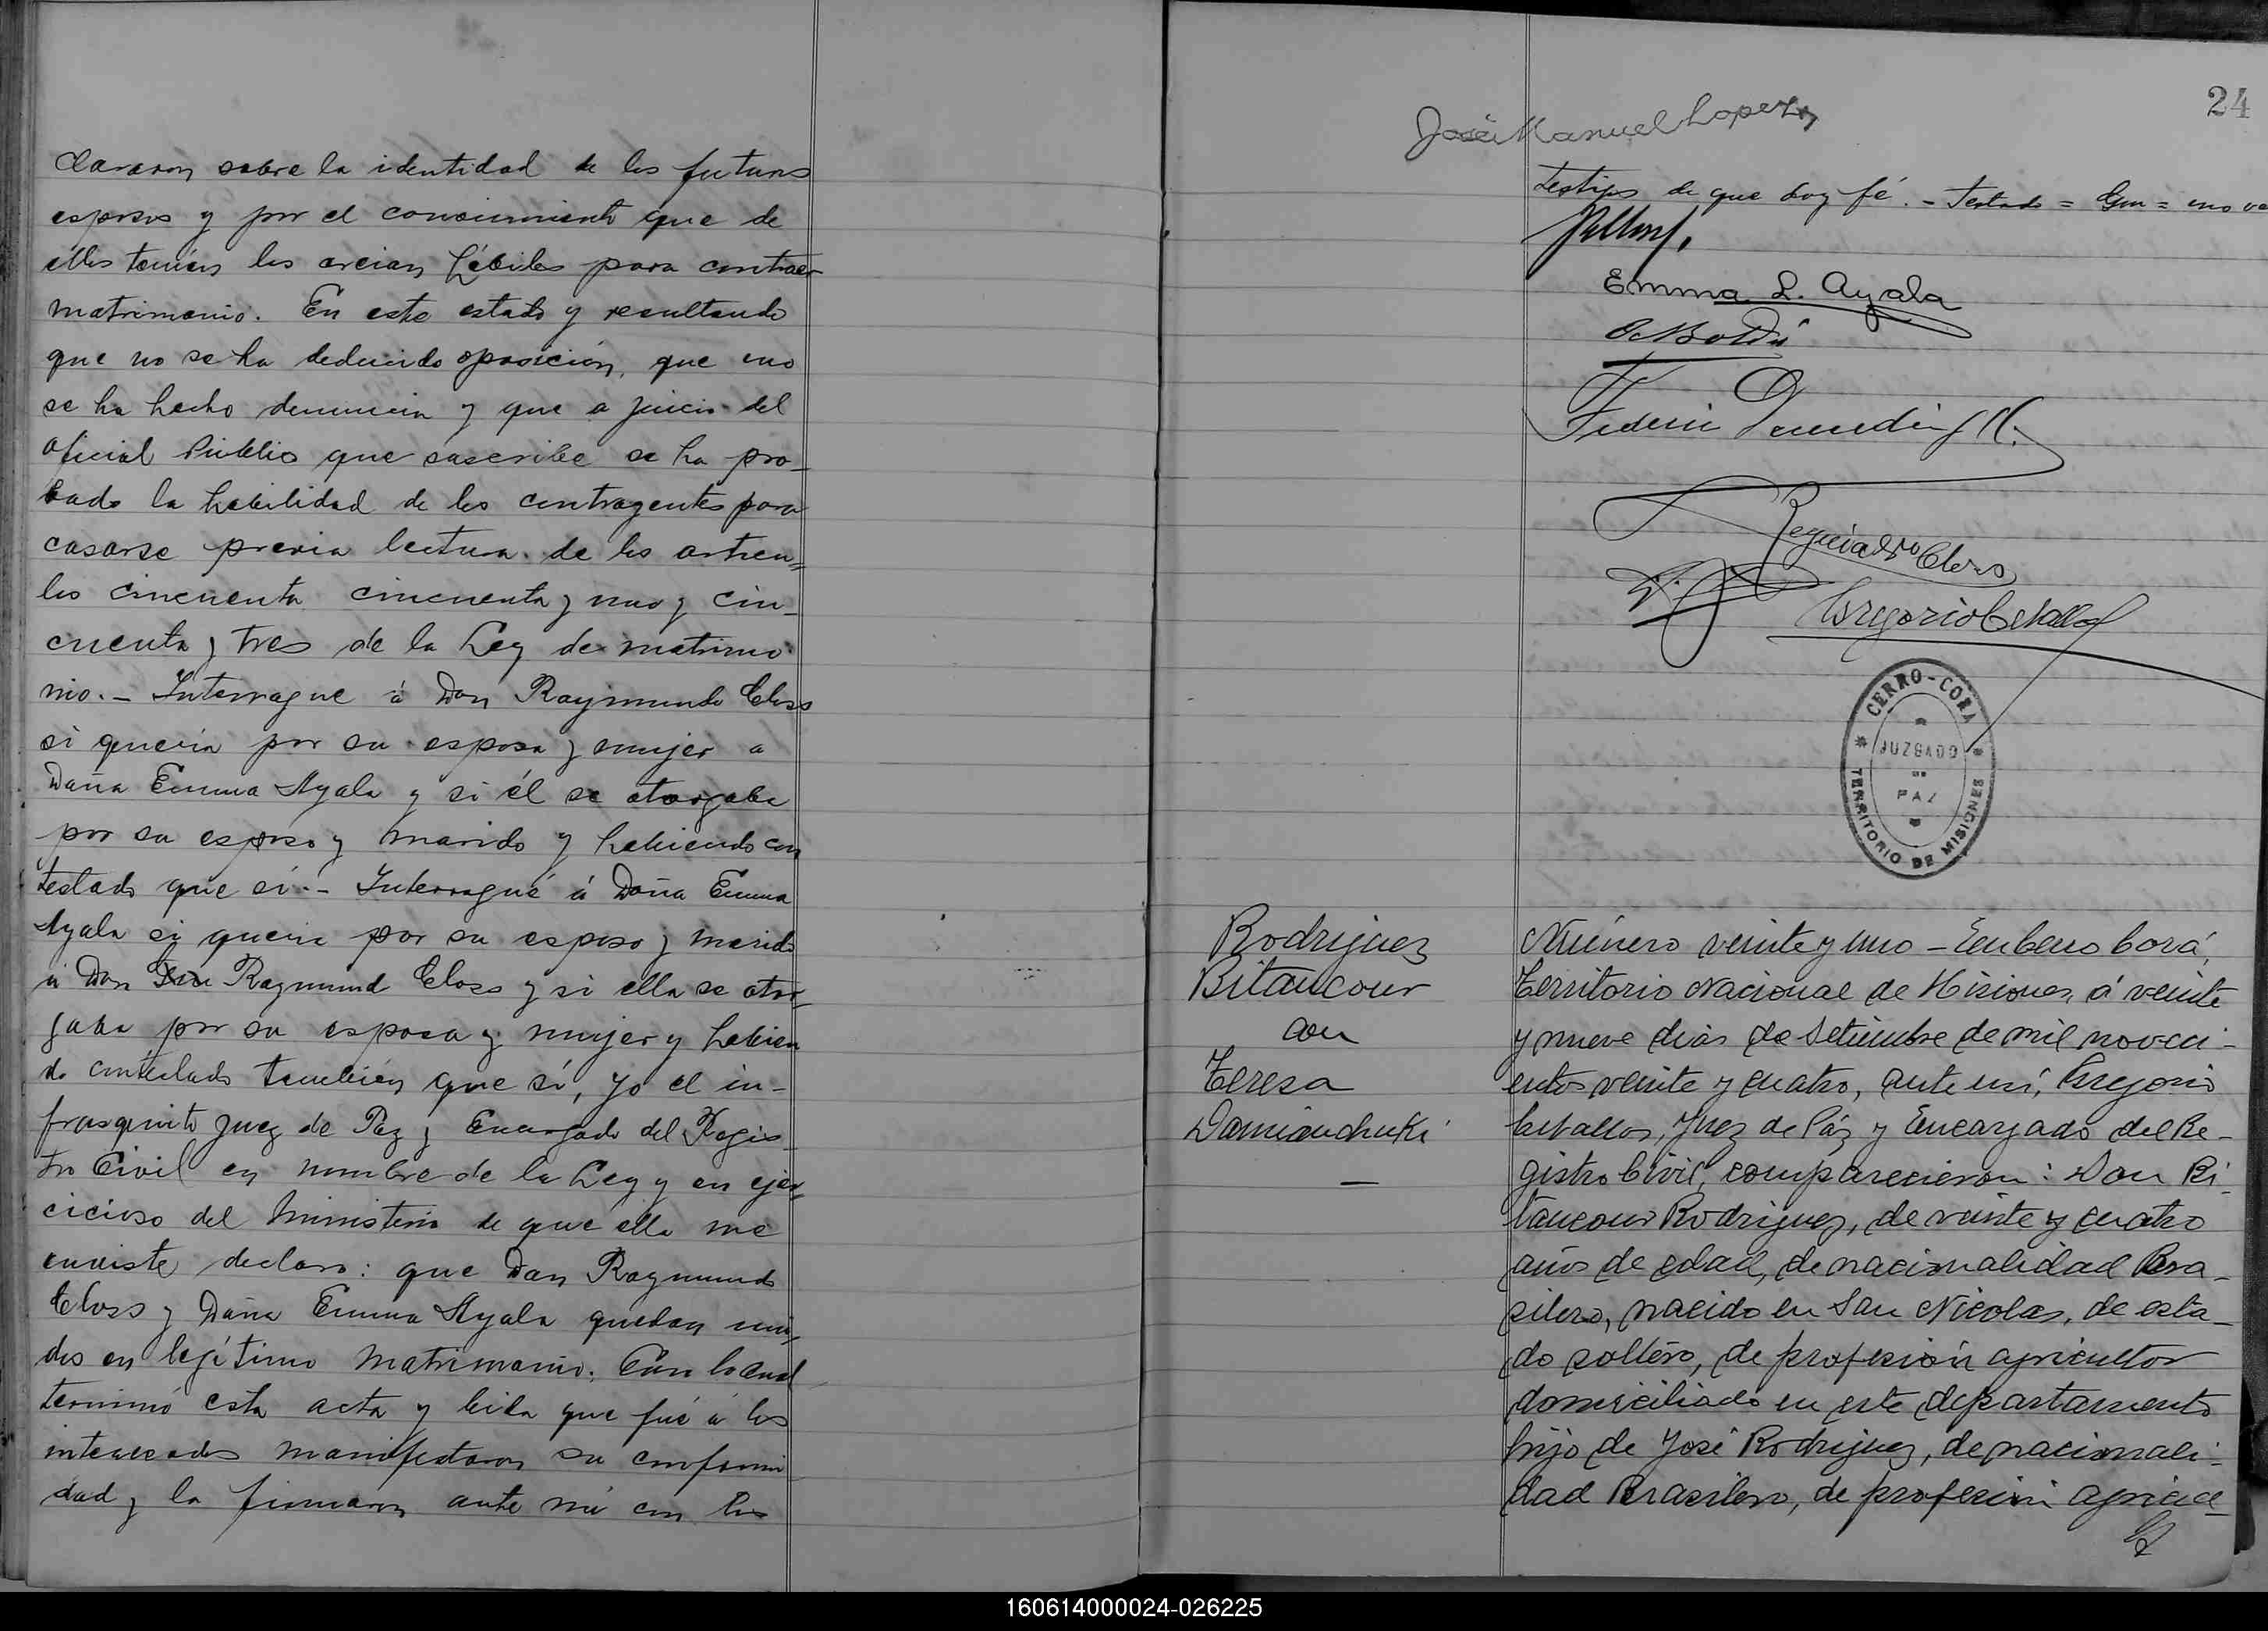 clararon sobre la identidad de los futuros
esposos y por el conocimiento que de
ellos tenían los creian hábiles para contraer
matrimonio. En este estado y resultando
que no se ha deducido oposición, que no
se ha hecho denuncia y que a juicio del
oficial Público que suscribe se ha pro-
bado la habilidad de los contrayentes para
casarse previa lectura de los artícu-
los cincuenta cincuenta y uno y cin-
cuenta y tres de la Ley de matrimo-
nio.- Interrogue á Don Raymundo Closs
si queria por su esposa y mujer a
Doña Emma Ayala y si él se otorgaba
por su esposo y marido y habiendo con
testado que sí.- Interrogué á Doña Emma
Ayala si queria por su esposo y marido
á Don Raymund Closs y si ella se otor-
gaba por su esposa y mujer y habien
do contestado tambien que sí, yo el in-
frasquito Juez de Paz y Encargado del Regis-
tro Civil en nombre de la Ley y en ejer-
cicioso del Ministerio de que ella me
enviste declaro: que Don Raymundo
Closs y Doña Emma Ayala quedan uni-
dos en legítimo Matrimonio. Con lo cual
terminó esta acta y leida que fué á los
interesados manifestaron su conformi
dad y la firmaron ante mi con los
24
José Manuel Lopez
testigos de que doy fé. - Testado =
Emma L. Ayala
Closs
Gregorio Cevallos
CERRO-CORA
JUZGADO
DE
PAZ
TERRITORIO DE MISIONES
Rodriguez
Bitancour
con
Teresa
Damianchuki
Número veinte y uno - En Cerro Corá,
Territorio Nacional de Misiones, á veinte
y nueve dias de Setiembre de mil noveci-
entos veinte y cuatro, ante mi, Gregorio
Cevallos, Juez de Páz y Encargado del Re-
gistro Civil, comparecieron: Don Bi-
tancour Rodriguez, de veinte y cuatro
años de edad, de nacionalidad Bra-
silero, nacido en San Nicolas, de esta-
do soltero, de profesión agricultor
domiciliado en este departamento
hijo de José Rodriguez, de nacionali-
dad Brasilero, de profesión agricul
160614000024-026225